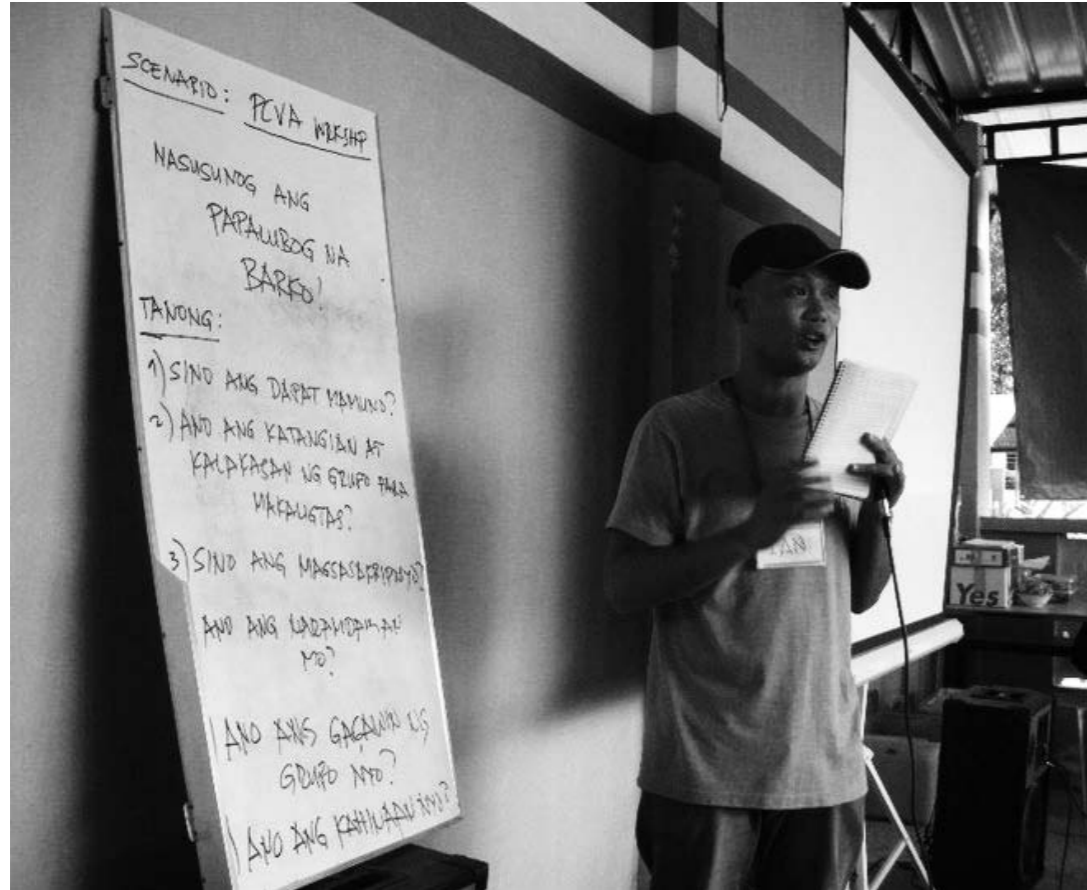 SCENARIO: PCVA WRKSHP
NASUSUNOG ANG
PAPALUBOG NA
BARKO!
TANONG:
1) SINO ANG DAPAT MAMUNO?
2) ANO ANG KATANGIAN AT
KALAKASAN NG GRUPO PARA
MAKALIGTAS?
3) SINO ANG MAGSASAKRIPISYO?
ANO ANG NARAMDAMAN
MO?
) ANO ANG GAGAWIN NG
GRUPO NYO?
) ANO ANG KAHINAAN NYO?
Yes